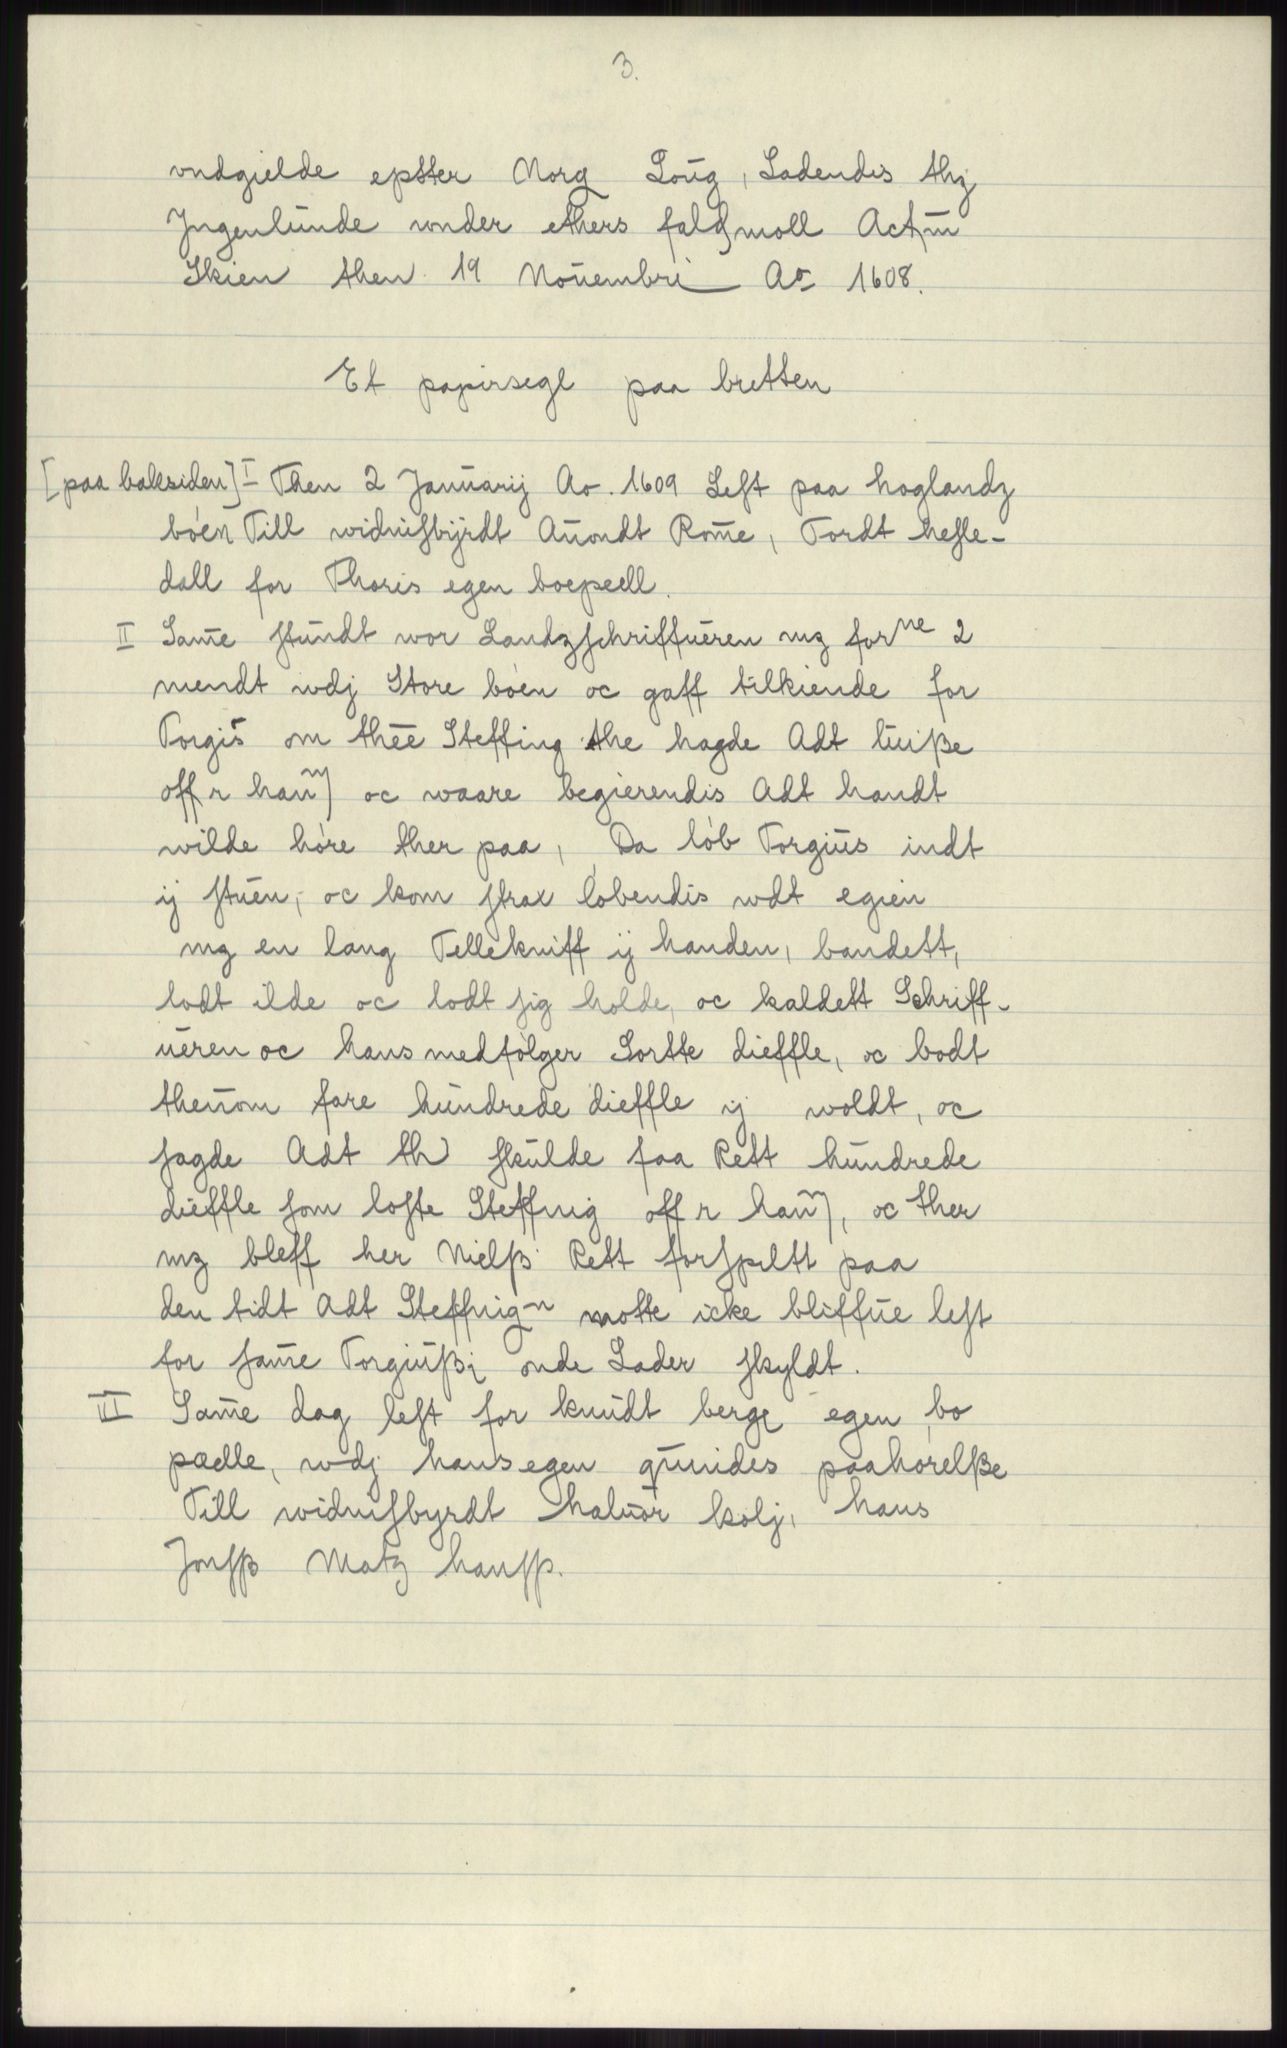 3.
vndgielde epster Norg Loug, Ladendis thz
Jngenlunde vnder ethers faldzmoll Actum
Skien then 19 Nouembri Ao 1608.
Et papirsegl paa bretten
[paa baksiden] I Then 2 Januarij Ao. 1609 Lest paa hoglandz
bóen Till widnisbÿrdt Auondt Rom̅e, Tordt hesle-
dall for Thoris egen boepeell.
II Sam̅e stundt wor Landzschriffueren mz forne 2
mendt wdj Store bóen oc gaff tilkiende for
Torgis om thee Steffing the hagde Adt luiße
offr han̅ oc waare begierendis Adt handt
wilde hóre ther paa, Da lób Torgius indt
ij stuen, oc kom strax lobendis wdt egien
mz en lang Tellekniff ij handen, bandett,
lodt ilde oc lodt sig holde, oc kaldett Schriff-
ueren oc hans medfólger Sortte dieffle, oc bodt
thennom fare hundrede dieffle ij woldt, oc
sagde Adt th skulde faa Rett hundrede
dieffle som loste Steffnig offr han̅, oc ther
mz bleff her Nielß Rett forspiltt paa
den tidt Adt Steffnign motte icke bliffue lest
for sam̅e Torgiußi onde Lader skyldt.
III Sam̅e dag lest for knudt berge egen bo
pælle, wdj hans egen quindes paahórelße
Till widnisbyrdt haluór kolj, hans
Jonsß Matz hansß.